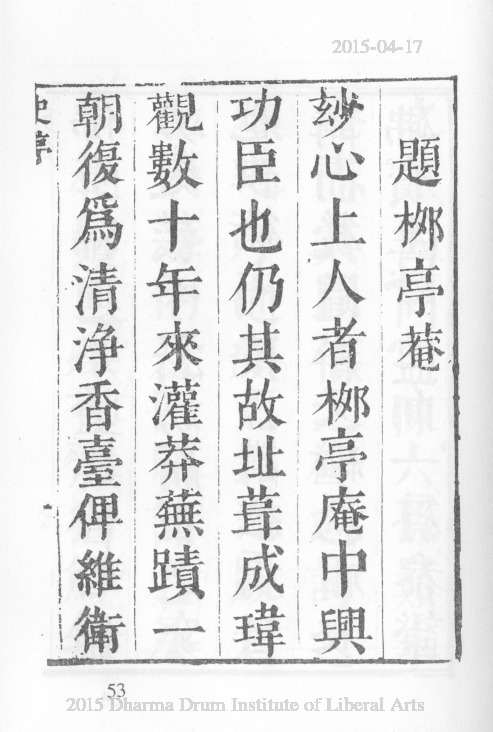 2015-04-17
題栁亭菴
玅心上人者栁亭庵中興
功臣也仍其故址葺成瑋
觀數十年來灌莽蕪蹟一
朝復爲清淨香臺俾維衛
53
2015 Dharma Drum Institute of Liberal Arts